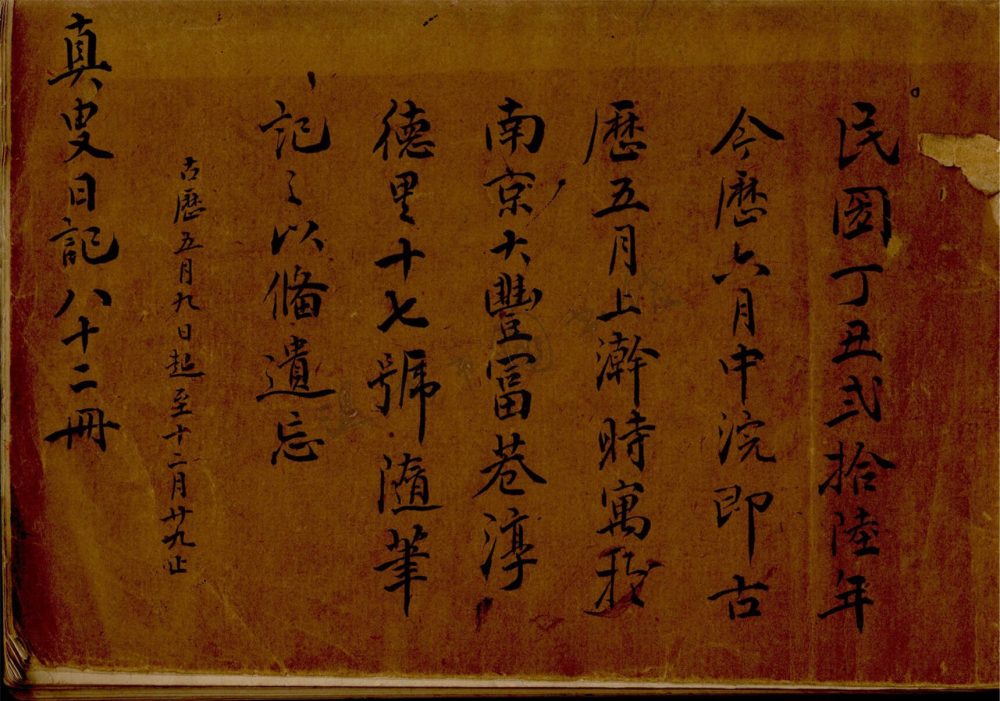 民國丁丑弍拾陸年
今歷六月中浣即古
歷五月上澣時寓在
南京大豐富巷淳
德里十七號隨筆
記之以俻遺忘
古歷五月九日起至十二月廿九止
真叟日記八十二冊